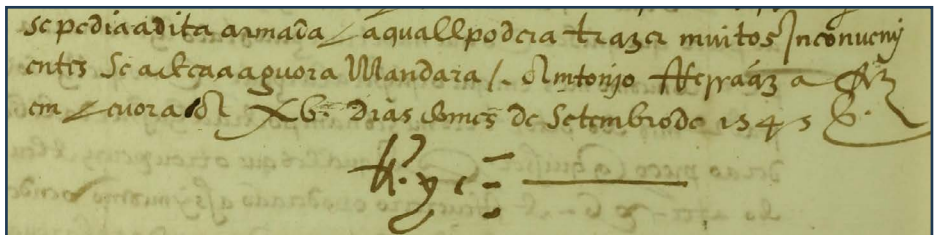 se pedia a dita armada / a quall poderia trazer muitos Inconueni
entes Se a elRa aguora Mandara /. Amtonjo Ferraz a fez
em / euora A XB. dias do mes de Setembro de 1545